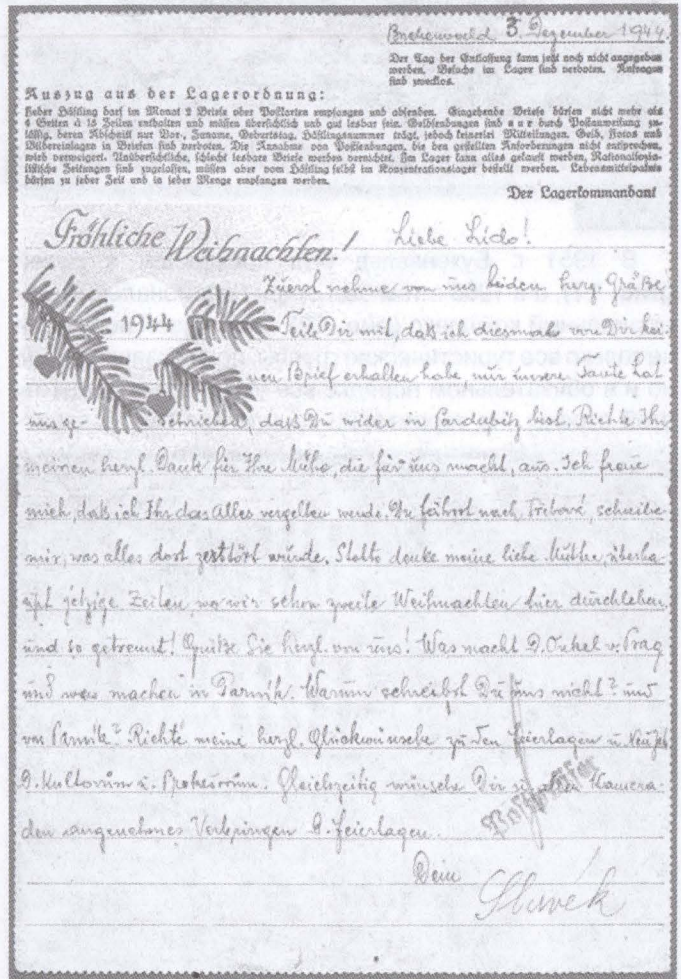 Buchenwald 3. Dezember 1944
Der Tag der Entlassung kann jetzt noch nicht angegeben
werden. Besuche im Lager sind verboten. Anfragen
sind zwecklos.
Auszug aus der Lagerordnung:
Jeder Häftling darf im Monat 2 Briefe oder Postkarten empfangen und absenden. Eingehende Briefe dürfen nicht mehr als
4 Seiten à 15 Zeilen enthalten und müssen übersichtlich und gut lesbar sein. Geldsendungen sind nur durch Postanweisung zu-
lässig, deren Abschnitt nur Vor-, Zuname, Geburtstag, Häftlingsnummer trägt, jedoch keinerlei Mitteilungen. Geld, Fotos und
Bildereinlagen in Briefen sind verboten. Die Annahme von Postsendungen, die den gestellten Anforderungen nicht entsprechen,
wird verweigert. Unübersichtliche, schlecht lesbare Briefe werden vernichtet. Im Lager kann alles gekauft werden. Nationalsozia-
listische Zeitungen sind zugelassen, müssen aber vom Häftling selbst im Konzentrationslager bestellt werden. Lebensmittelpakete
dürfen zu jeder Zeit und in jeder Menge empfangen werden.
Der Lagerkommandant
Fröhliche Weihnachten!
Liebe Lido!
Zuerst nehme von uns beiden herz. Grüße
1944
Teile Dir mit, daß ich diesmal von Dir kei-
nen Brief erhalten habe nur unsere Tante hat
uns ge- schrieben, daß Du wider in Pardubitz bist. Richte Ihr
meinen herzl. Dank für Ihre Mühe, die für uns macht, aus. Ich freue
mich, daß ich Ihr das Alles vergelten werde. Du fährst nach Třebová, schreibe
mir, was alles dort zerstört wurde. denke meine liebe
jetzige Zeiten, wo wir schon zweite Weihnachten hier durchleben
und so getrennt! Grüße Sie herzl. von uns! Was macht D. Onkel v. Prag
und was machen in Parnik. Warum schreibst Du uns nicht? und
von Parnik? Richte meine herzl. Glückwünsche zu den Feiertagen u. Neujahr
D. u. Gleichzeitig wünsche Dir allen Kamera-
den angenehmes Verbringen d. Feiertagen.
Postprüfer
Dein
Slavék